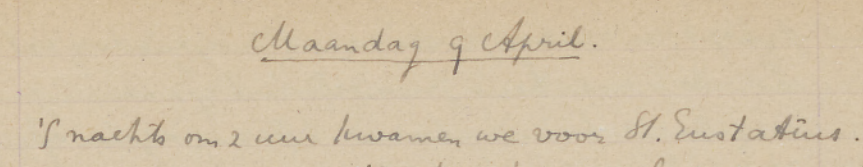 Maandag 9 April.
'S nachts om 2 uur kwamen we voor St. Eustatius.